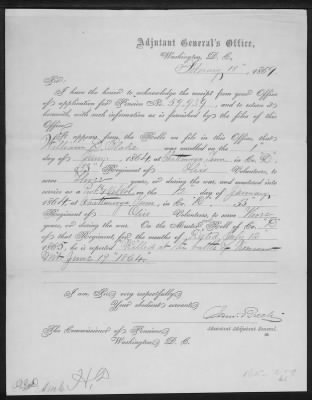 Adjutant General's Office,
Washington, D. C.,
February 18", 1867.
Sir:
I have the honor to acknowledge the receipt from your Office
of application for Pension No. 59.939, and to return it
herewith, with such information as is furnished by the files of this
Office.
It appears from the Rolls on file in this Office, that
William Blake was enrolled on the 1"
day of Jany, 1864, at Tenn., in Co.
53" Regiment of Ohio Volunteers, to
serve Three years, or during the war, and mustered into
service as a on the day of January,
1864, at Tenn., in Co. 53"
Regiment of Ohio Volunteers, to serve Three
years, or during the war. On the Muster Roll of Co.
of that Regiment for the months of
1865, he is reported Killed at the battle of Kenesaw
Mt. June 1864.
I am, Sir, very respectfully,
Your obedient servant,
Saml. Breck
Assistant Adjutant General.
The Commissioner of Pensions,
Washington, D. C.